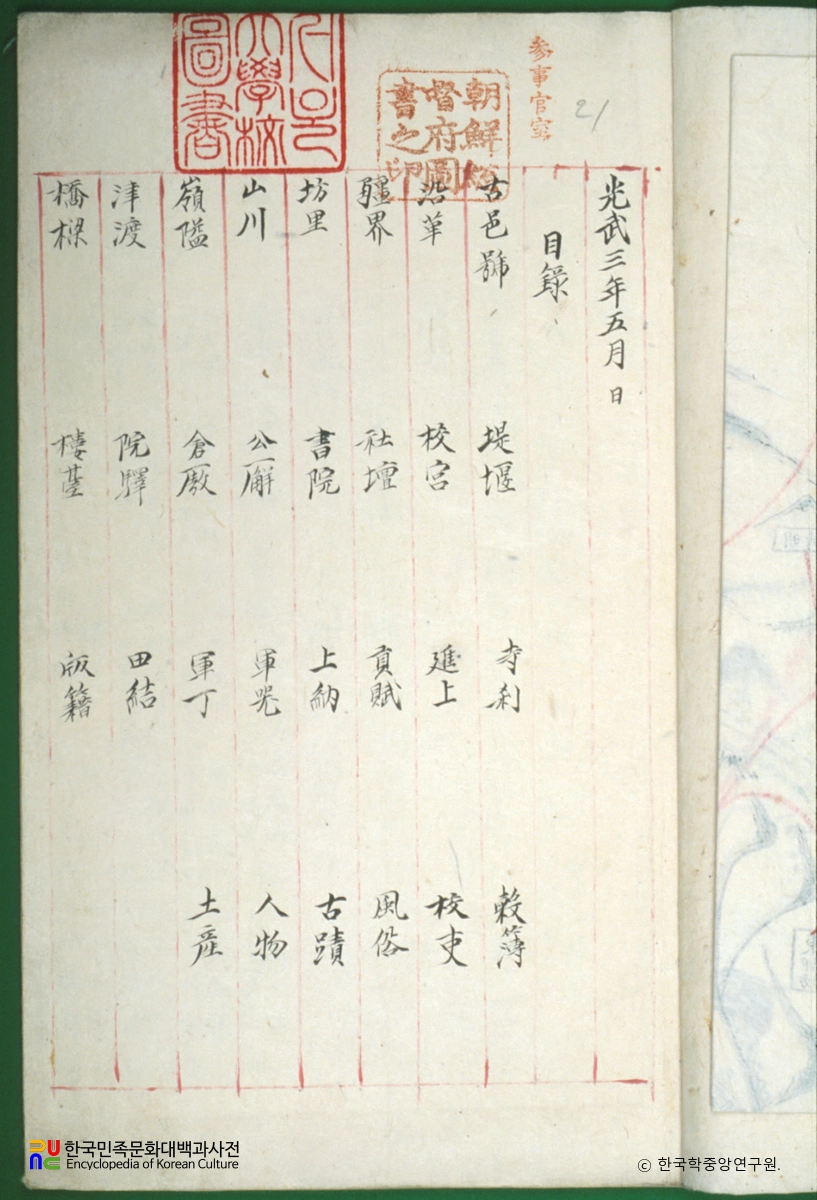 参事官室
21
朝鮮總
督府圖
書之印
서울
大學校
圖書
光武三年五月 日
目錄
古邑號 堤堰 寺刹 穀簿
沿革 校宮 進上 校吏
疆界 社壇 貢賦 風俗
坊里 書院 上納 古蹟
山川 公廨 軍器 人物
嶺隘 倉厫 軍丁 土産
津渡 院驛 田結
橋樑 樓臺 版籍
한국민족문화대백과사전
Encyclopedia of Korean Culture
© 한국학중앙연구원.